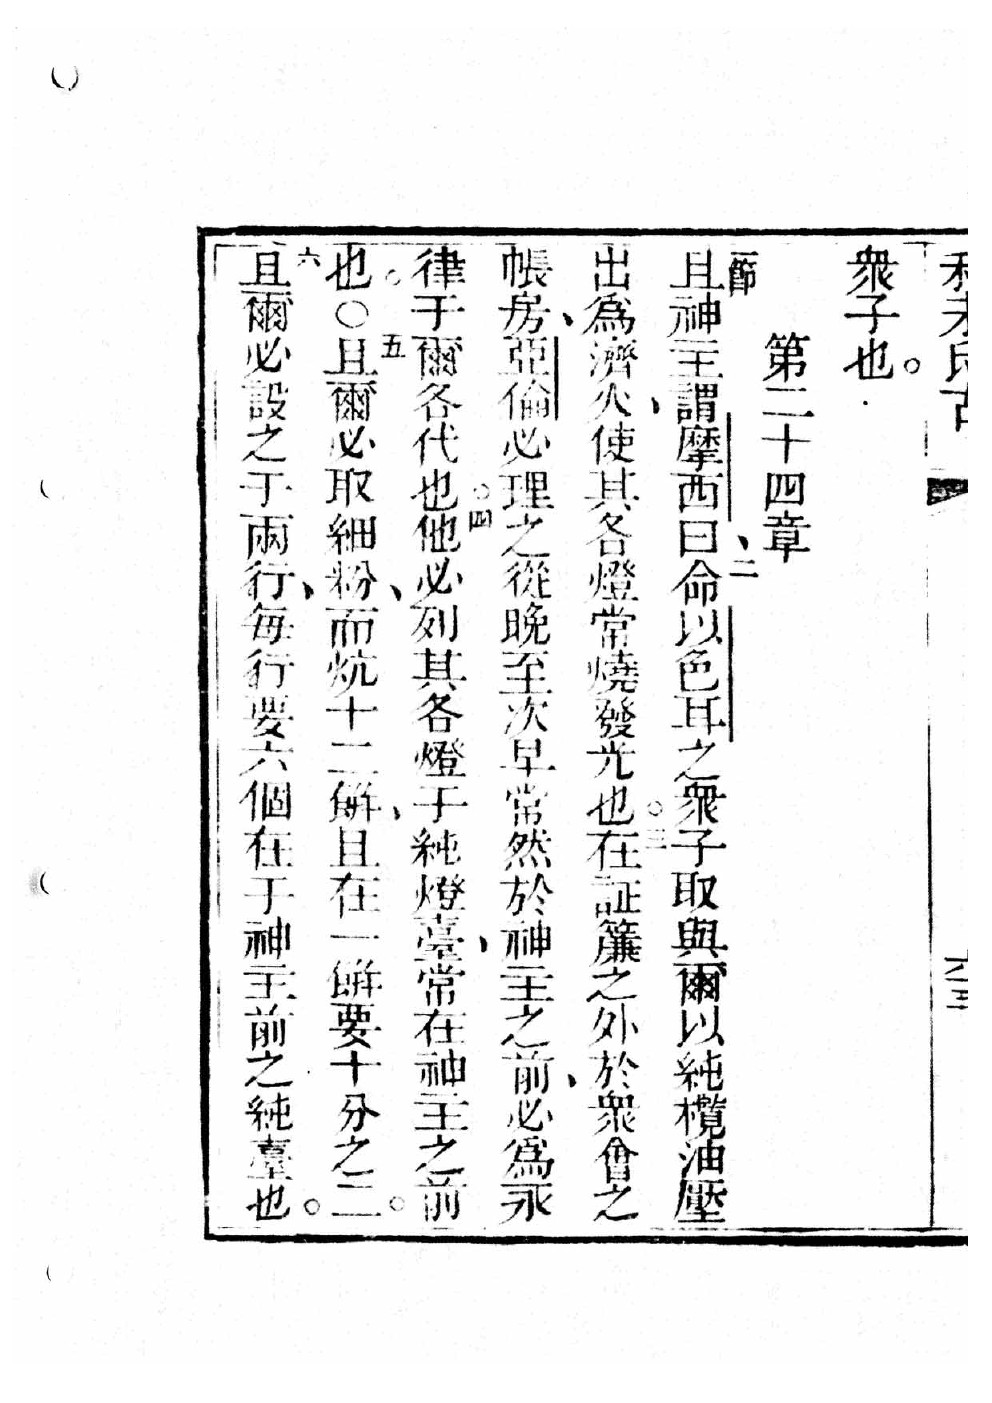 利未氏古
六十三
衆子也。
第二十四章
一節且神主謂摩西曰、二命以色耳之衆子取與爾以純欖油壓
出爲濟火、使其各燈常燒發光也。三在証簾之外於衆會之
帳房、亞倫必理之從晚至次早常然於神主之前、必爲永
律于爾各代也。四他必列其各燈于純燈臺、常在神主之前
也。〇五且爾必取細粉、而炕十二餅、且在一餅要十分之二。
六且爾必設之于兩行、每行要六個在于神主前之純臺也。